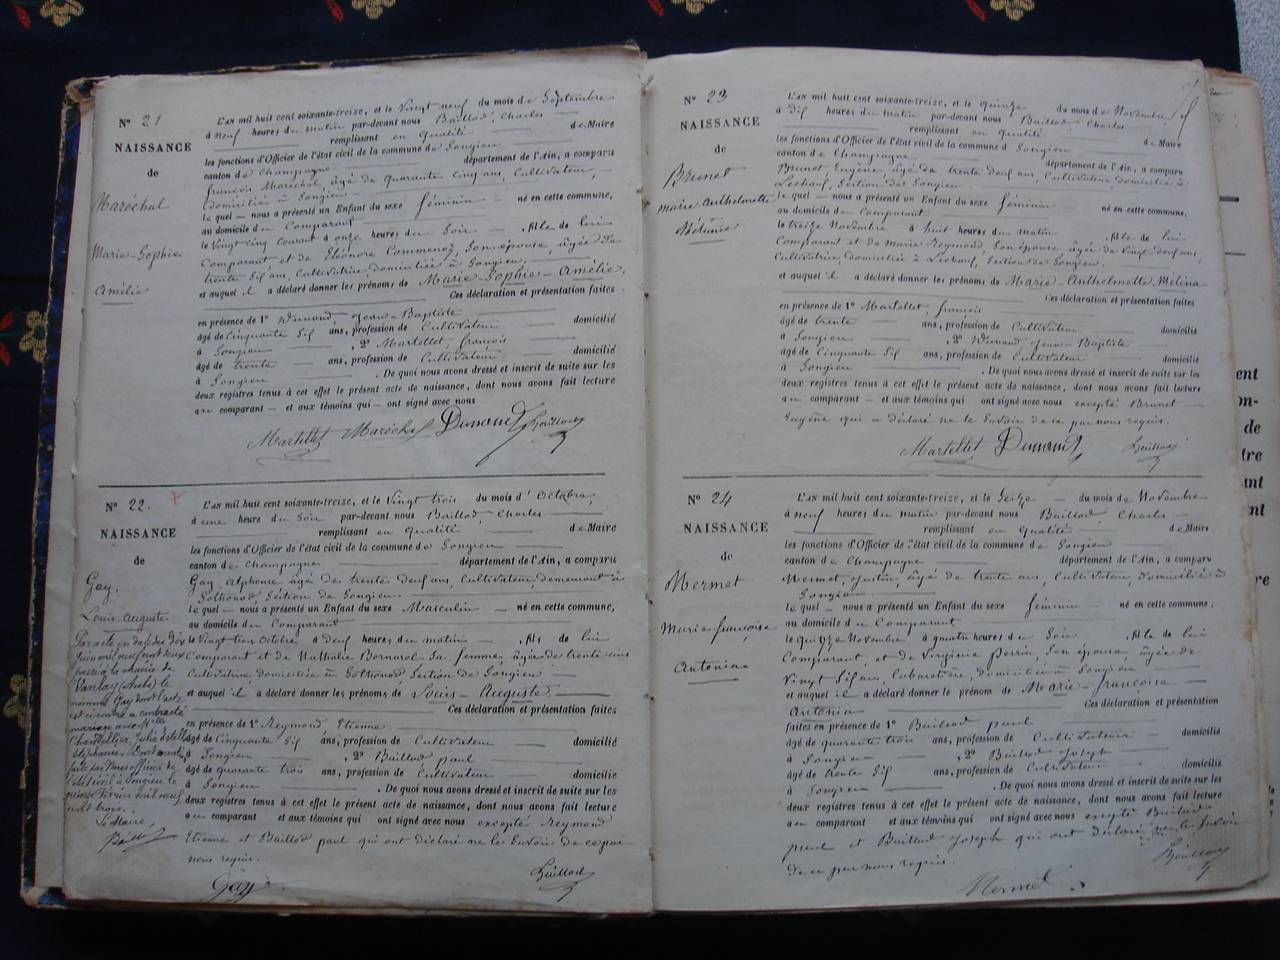 N° 21
NAISSANCE
de
Maréchal
Marie-Sophie
Amélie
L'AN mil huit cent soixante-treize, et le Vingt neuf du mois de Septembre
à neuf heures du matin par-devant nous Baillod, Charles
remplissant en qualité de Maire
les fonctions d'Officier de l'état civil de la commune de Songieu
canton de Champagne département de l'Ain, a comparu
françois Maréchal, âgé de quarante cinq ans, Cultivateur,
domicilié à Songieu
le quel nous a présenté un Enfant du sexe féminin né en cette commune,
au domicile du Comparant
le Vingt cinq courant à onze heures du Soir , fille de lui
Comparant et de Eléonore Commenoz, son épouse, âgée de
trente six ans, Cultivatrice domiciliée à Songieu.
et auquel il a déclaré donner les prénoms de Marie-Sophie-Amélie.
Ces déclaration et présentation faites
en présence de 1° Dunand, Jean-Baptiste
âgé de cinquante six ans, profession de Cultivateur domicilié
à Songieu , 2° Martellet, françois
âgé de trente ans, profession de Cultivateur domicilié
à Songieu . De quoi nous avons dressé et inscrit de suite sur les
deux registres tenus à cet effet le présent acte de naissance, dont nous avons fait lecture
au comparant et aux témoins qui ont signé avec nous
Martellet Maréchal Dunand Baillod
N° 22.
NAISSANCE
de
Gay,
Louis-Auguste
Par acte en date du dix
juin mil neuf cent deux
passé à la mairie de
Vanlay (Aube) le
nommé Gay dont l'acte
est ci-contre a contracté
mariage avec Mlle
Julie Estelle
Stéphanie. Dont mention
faite par Nous officier de
l'état civil à Songieu le
février mil neuf
cent trois.
Le Maire,
L'AN mil huit cent soixante-treize, et le Vingt trois du mois d'Octobre,
à une heure du Soir par-devant nous Baillod, Charles
remplissant en qualité de Maire
les fonctions d'Officier de l'état civil de la commune de Songieu
canton de Champagne département de l'Ain, a comparu
Gay, Alphonse âgé de trente neuf ans, Cultivateur, demeurant à
Sothonod Section de Songieu.
le quel nous a présenté un Enfant du sexe Masculin né en cette commune,
au domicile du Comparant
le Vingt trois Octobre à Neuf heures du matin , fils de lui
Comparant et de Nathalie Bornarel sa femme, âgée de trente cinq
Cultivatrice domiciliée à Sothonod, Section de Songieu
et auquel il a déclaré donner les prénoms de Louis-Auguste
Ces déclaration et présentation faites
en présence de 1° Reymond, Etienne
âgé de Cinquante Six ans, profession de Cultivateur domicilié
à Songieu , 2° Baillod paul
âgé de quarante trois ans, profession de Cultivateur domicilié
à Songieu . De quoi nous avons dressé et inscrit de suite sur les
deux registres tenus à cet effet le présent acte de naissance, dont nous avons fait lecture
au comparant et aux témoins qui ont signé avec nous excepté Reymond
Etienne et Baillod paul qui ont déclaré ne le Savoir de ce par
nous requis.
Gay Baillod
N° 23
NAISSANCE
de
Brunet
Marie Anthelmette
Mélina
L'AN mil huit cent soixante-treize, et le quinze du mois de Novembre
à dix heures du matin par-devant nous Baillod, Charles
remplissant en qualité de Maire
les fonctions d'Officier de l'état civil de la commune de Songieu
canton de Champagne département de l'Ain, a comparu
Brunet, Eugène, âgé de trente neuf ans, Cultivateur domicilié à
Lechaud, Section de Songieu
le quel nous a présenté un Enfant du sexe féminin né en cette commune,
au domicile du Comparant
le treize Novembre à huit heures du matin , fille de lui
Comparant et de Marie Reymond, son épouse âgée de Vingt neuf ans,
Cultivatrice, domiciliée à Lechaud, Section de Songieu.
et auquel il a déclaré donner les prénoms de Marie-Anthelmette Mélina
Ces déclaration et présentation faites
en présence de 1° Martellet, françois
âgé de trente ans, profession de Cultivateur domicilié
à Songieu , 2° Dunand Jean-Baptiste
âgé de Cinquante Six ans, profession de Cultivateur domicilié
à Songieu . De quoi nous avons dressé et inscrit de suite sur les
deux registres tenus à cet effet le présent acte de naissance, dont nous avons fait lecture
au comparant et aux témoins qui ont signé avec nous excepté Brunet
Eugène qui a déclaré ne le Savoir de ce par nous requis.
Martellet Dunand Baillod
N° 24
NAISSANCE
de
Mermet
Marie-françoise
Antonia
L'AN mil huit cent soixante-treize, et le Seize du mois de Novembre
à neuf heures du matin par-devant nous Baillod, Charles
remplissant en qualité de Maire
les fonctions d'Officier de l'état civil de la commune de Songieu
canton de Champagne département de l'Ain, a comparu
Mermet, Justin, âgé de trente ans, Cultivateur, domicilié à
Songieu
le quel nous a présenté un Enfant du sexe féminin né en cette commune,
au domicile du Comparant
le quinze Novembre à quatre heures du Soir , fille de lui
Comparant, et de Virginie Perrin, son épouse, âgée de
Vingt Six ans, Cabaretière, domiciliée à Songieu
et auquel il a déclaré donner le prénom de Marie-françoise
Antonia Ces déclaration et présentation
faites en présence de 1° Baillod paul
âgé de quarante trois ans, profession de Cultivateur domicilié
à Songieu , 2° Baillod Joseph
âgé de trente Six ans, profession de Cultivateur domicilié
à Songieu . De quoi nous avons dressé et inscrit de suite sur les
deux registres tenus à cet effet le présent acte de naissance, dont nous avons fait lecture
au comparant et aux témoins qui ont signé avec nous excepté Baillod
paul et Baillod Joseph qui ont déclaré ne le Savoir
de ce par nous requis.
Mermet Baillod